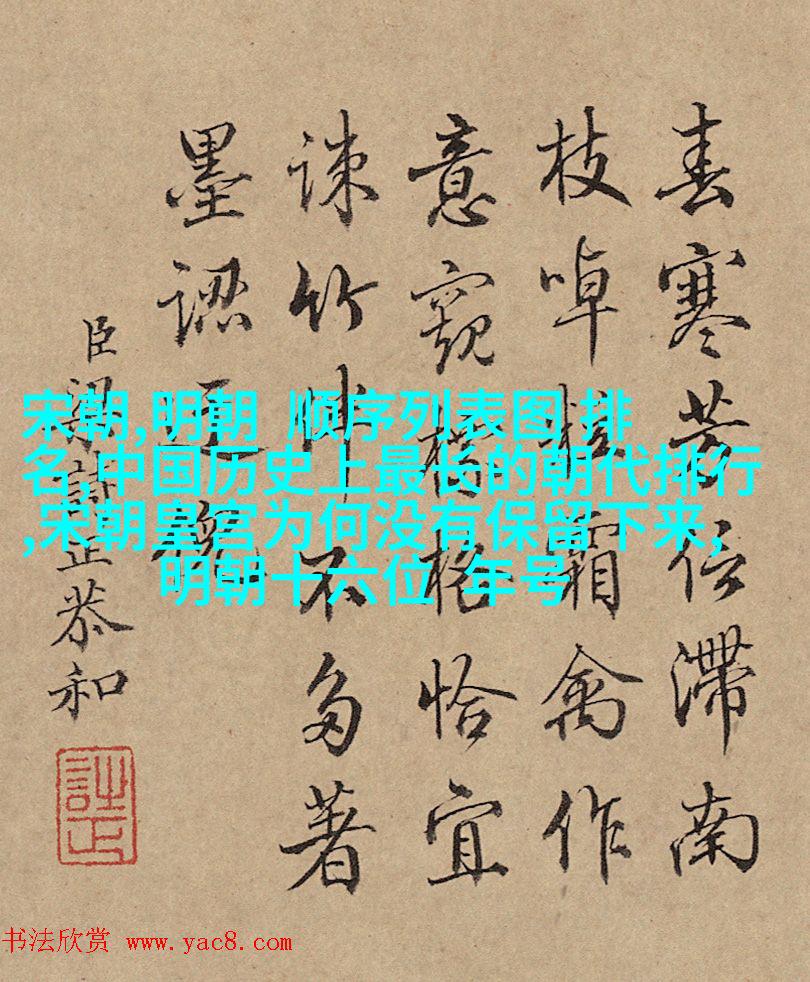 宋朝,明朝 顺序列表图 排
名,中国历史上最长的朝代排行
,宋朝皇宫为何没有保留下来,
明朝十六位 年号
春寒芳信滯南
枝啅霜禽作
意窺標格恰宜
竹伴不多著
墨認
臣梁詩正恭和
书法欣赏 www.yac8.com